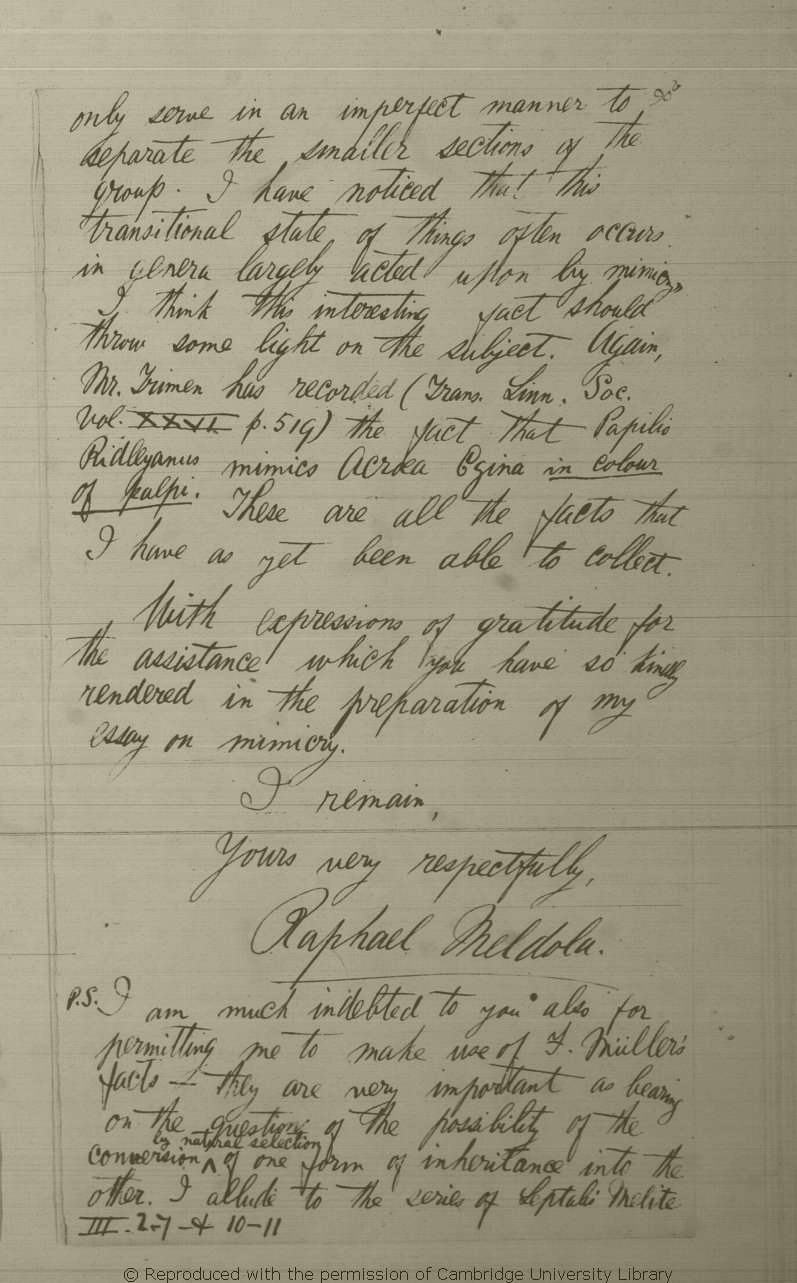 only serve in an imperfect manner to
separate the smaller sections of the
group. I have noticed that this
transitional state of things often occurs
in genera largely acted upon by mimicry.
I think this interesting fact should
throw some light on the subject. Again,
Mr. Trimen has recorded (Trans. Linn. Soc.
Vol. XXVI p. 519) the fact that Papilio
Ridleyanus mimics Acræa Egina in colour
of palpi. These are all the facts that
I have as yet been able to collect.
With expressions of gratitude for
the assistance which you have so kindly
rendered in the preparation of my
essay on mimicry.
I remain,
Yours very respectfully,
Raphael Meldola.
P.S. I am much indebted to you also for
permitting me to make use of F. Müller's
facts — they are very important as bearing
on the question of the possibility of the
by natural selection
conversion ^ of one form of inheritance into the
other. I allude to the series of Leptalis Melite
III. 2-7 & 10-11
© Reproduced with the permission of Cambridge University Library